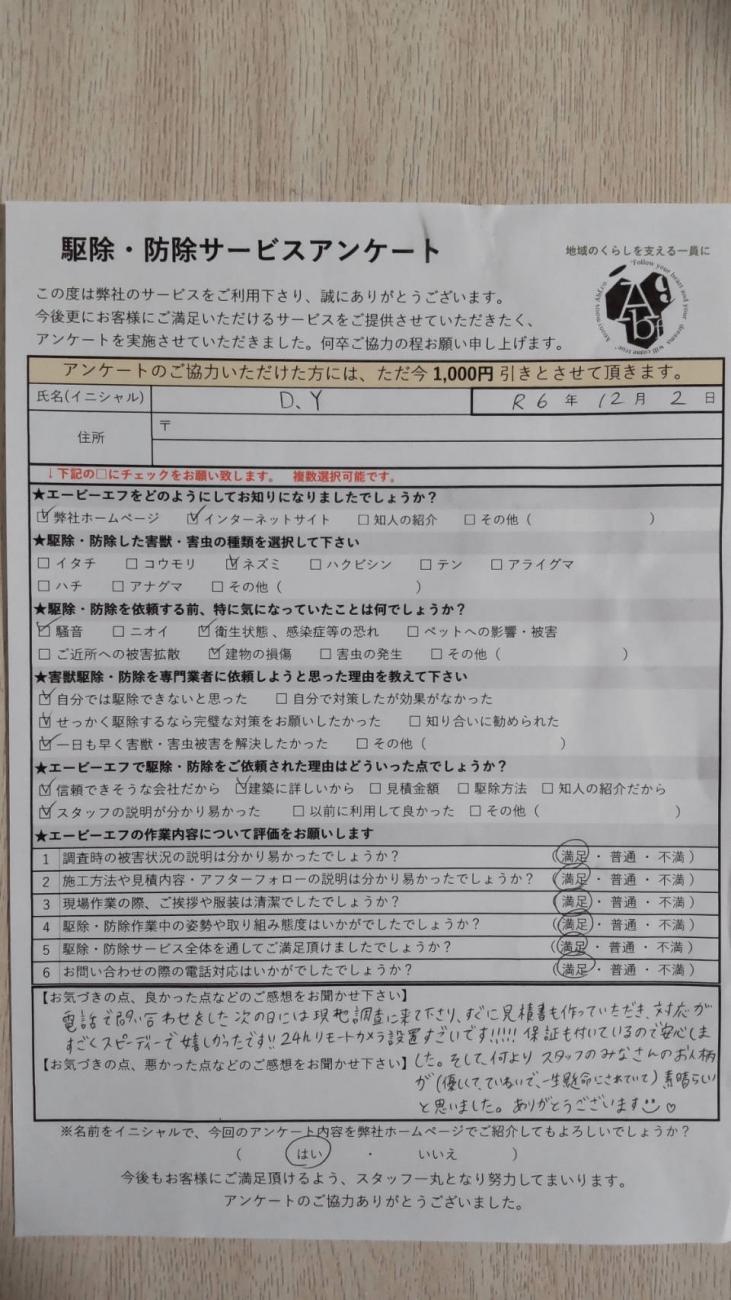 駆除・防除サービスアンケート
地域のくらしを支える一員に
この度は弊社のサービスをご利用下さり、誠にありがとうございます。
今後更にお客様にご満足いただけるサービスをご提供させていただきたく、
アンケートを実施させていただきました。何卒ご協力の程お願い申し上げます。
"Follow your heart and your dreams will come true"
Abf
アンケートのご協力いただけた方には、ただ今 1,000円 引きとさせて頂きます。
氏名(イニシャル) D、Y R 6 年 12 月 2 日
住所 〒
↓下記の□にチェックをお願い致します。 複数選択可能です。
★エービーエフをどのようにしてお知りになりましたでしょうか？
☑弊社ホームページ ☑インターネットサイト □知人の紹介 □その他（ ）
★駆除・防除した害獣・害虫の種類を選択して下さい
□イタチ □コウモリ ☑ネズミ □ハクビシン □テン □アライグマ
□ハチ □アナグマ □その他（ ）
★駆除・防除を依頼する前、特に気になっていたことは何でしょうか？
☑騒音 □ニオイ ☑衛生状態 、感染症等の恐れ □ペットへの影響・被害
□ご近所への被害拡散 ☑建物の損傷 □害虫の発生 □その他（ ）
★害獣駆除・防除を専門業者に依頼しようと思った理由を教えて下さい
☑自分では駆除できないと思った □自分で対策したが効果がなかった
☑せっかく駆除するなら完璧な対策をお願いしたかった □知り合いに勧められた
☑一日も早く害獣・害虫被害を解決したかった □その他（ ）
★エービーエフで駆除・防除をご依頼された理由はどういった点でしょうか？
☑信頼できそうな会社だから ☑建築に詳しいから □見積金額 □駆除方法 □知人の紹介だから
☑スタッフの説明が分かり易かった □以前に利用して良かった □その他（ ）
★エービーエフの作業内容について評価をお願いします
1 調査時の被害状況の説明は分かり易かったでしょうか？ （満足・普通・不満）
2 施工方法や見積内容・アフターフォローの説明は分かり易かったでしょうか？ （満足・普通・不満）
3 現場作業の際、ご挨拶や服装は清潔でしたでしょうか？ （満足・普通・不満）
4 駆除・防除作業中の姿勢や取り組み態度はいかがでしたでしょうか？ （満足・普通・不満）
5 駆除・防除サービス全体を通してご満足頂けましたでしょうか？ （満足・普通・不満）
6 お問い合わせの際の電話対応はいかがでしたでしょうか？ （満足・普通・不満）
【お気づきの点、良かった点などのご感想をお聞かせ下さい】
電話で問い合わせをした次の日には現地調査に来て下さり、すぐに見積書も作っていただき、対応が
すごくスピーディーで嬉しかったです!! 24hリモートカメラ設置すごいです!!!!! 保証も付いているので安心しま
【お気づきの点、悪かった点などのご感想をお聞かせ下さい】 した。そして、何より スタッフのみなさんのお人柄
が(優しくて、ていねいで、一生懸命にされていて) 素晴らしい
と思いました。ありがとうございます☺♡
※名前をイニシャルで、今回のアンケート内容を弊社ホームページでご紹介してもよろしいでしょうか？
（ はい ・ いいえ ）
今後もお客様にご満足頂けるよう、スタッフ一丸となり努力してまいります。
アンケートのご協力ありがとうございました。